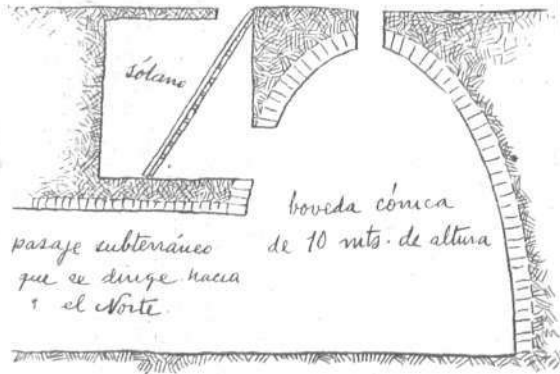 sólano
boveda cónica
de 10 mts. de altura
pasaje subterráneo
que se dirige hacia
el Norte.